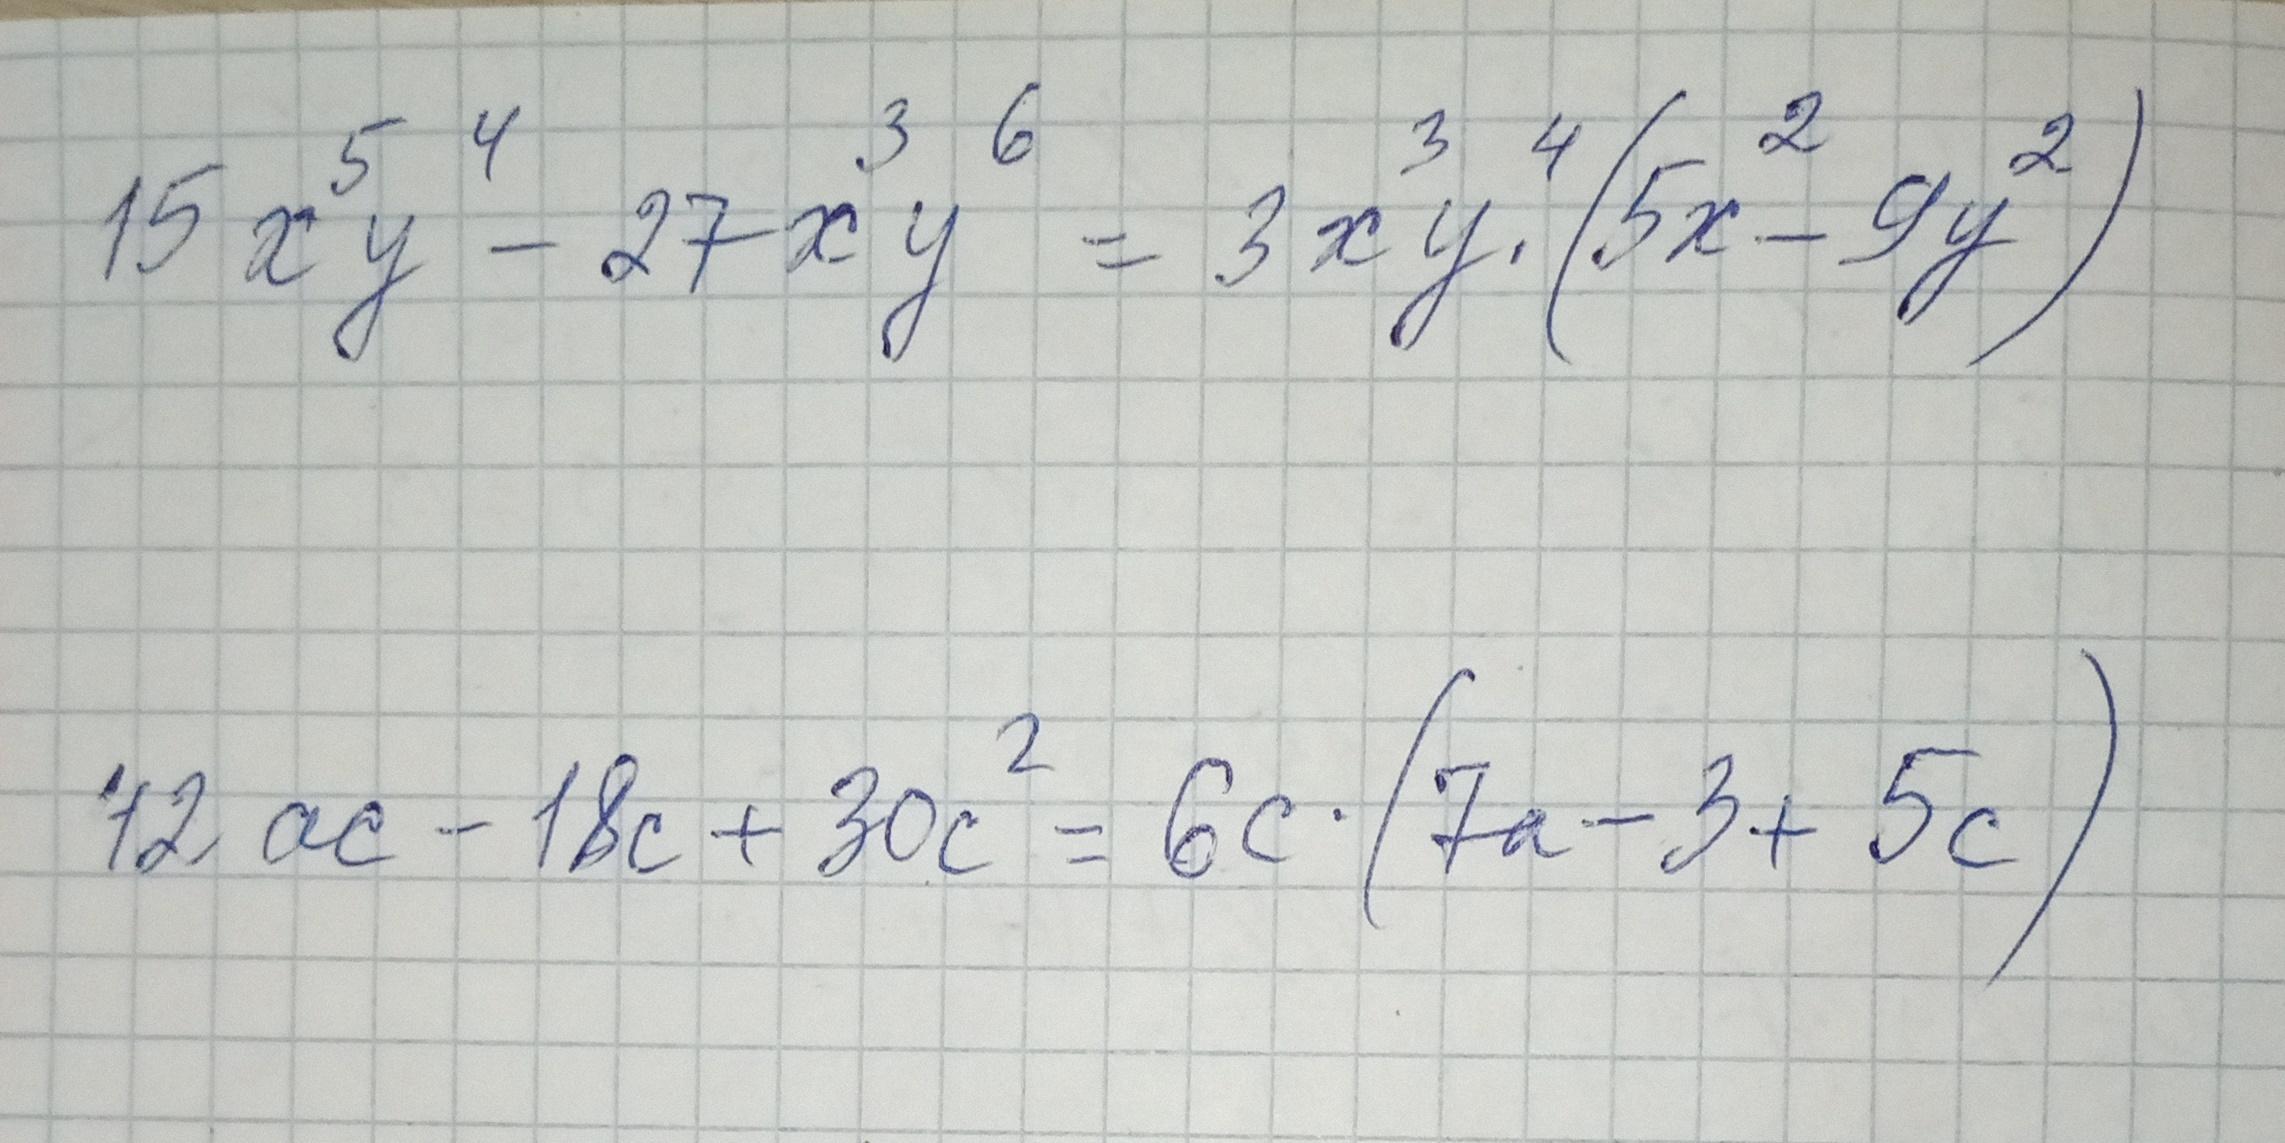 15x⁵y⁴ - 27x³y⁶ = 3x³y⁴·(5x² - 9y²)
42ac - 18c + 30c² = 6c·(7a - 3 + 5c)